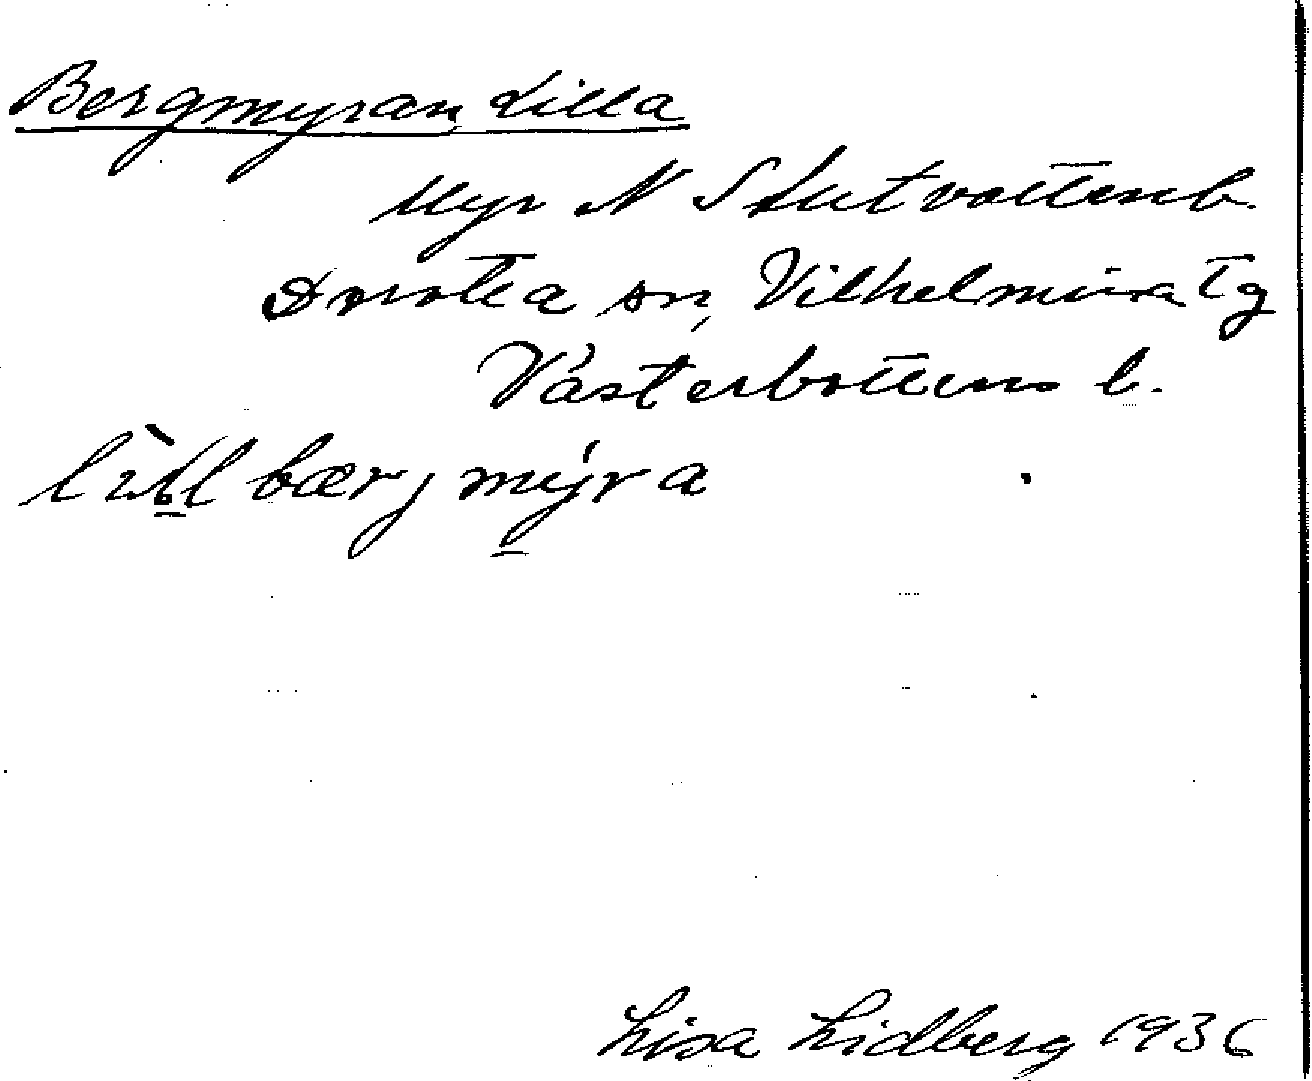 Bergmyran Lilla
Myr N Stutvattenb.
Dorotea sn, Vilhelmina tg
Västerbottens l.
lìtl bærjmýra
Lisa Lidberg 1936